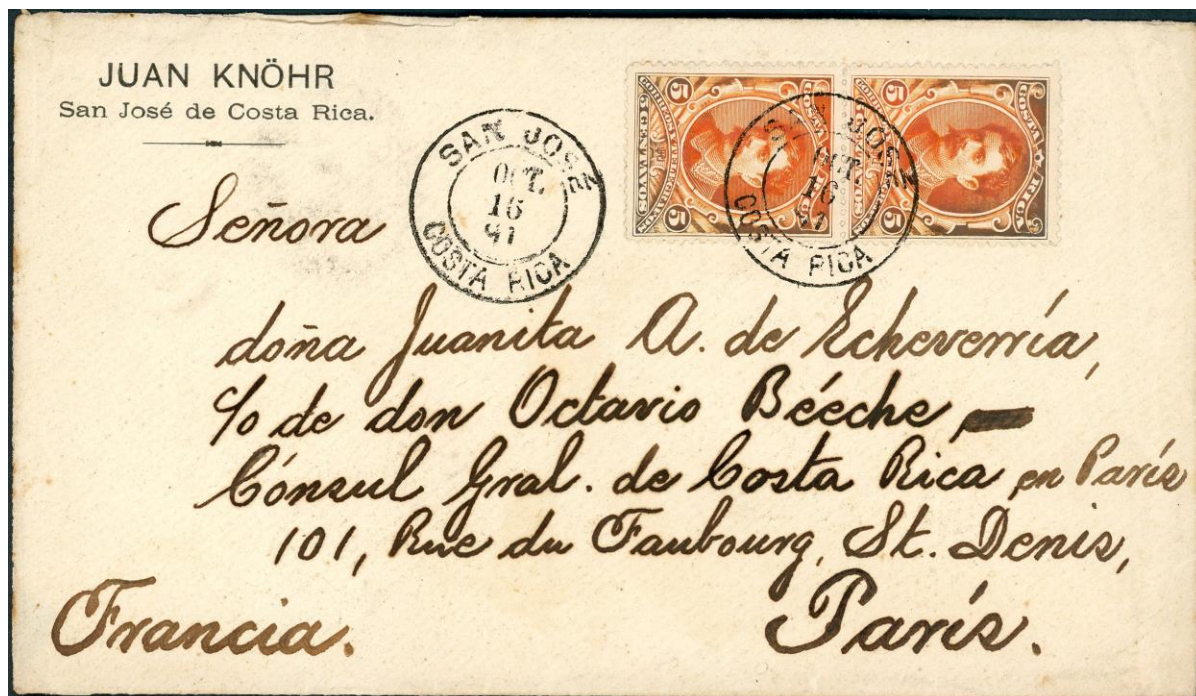 JUAN KNÖHR
San José de Costa Rica.
SAN JOSE
OCT.
16
91
COSTA RICA
5 5
COSTA RICA
SAN JOSE
OCT.
16
91
COSTA RICA
5 5
COSTA RICA
Señora
doña Juanita A. de Echeverría,
c/o de don Octavio Bééche,
Cónsul Gral. de Costa Rica en París
101, Rue du Faubourg, St. Denis,
París.
Francia.